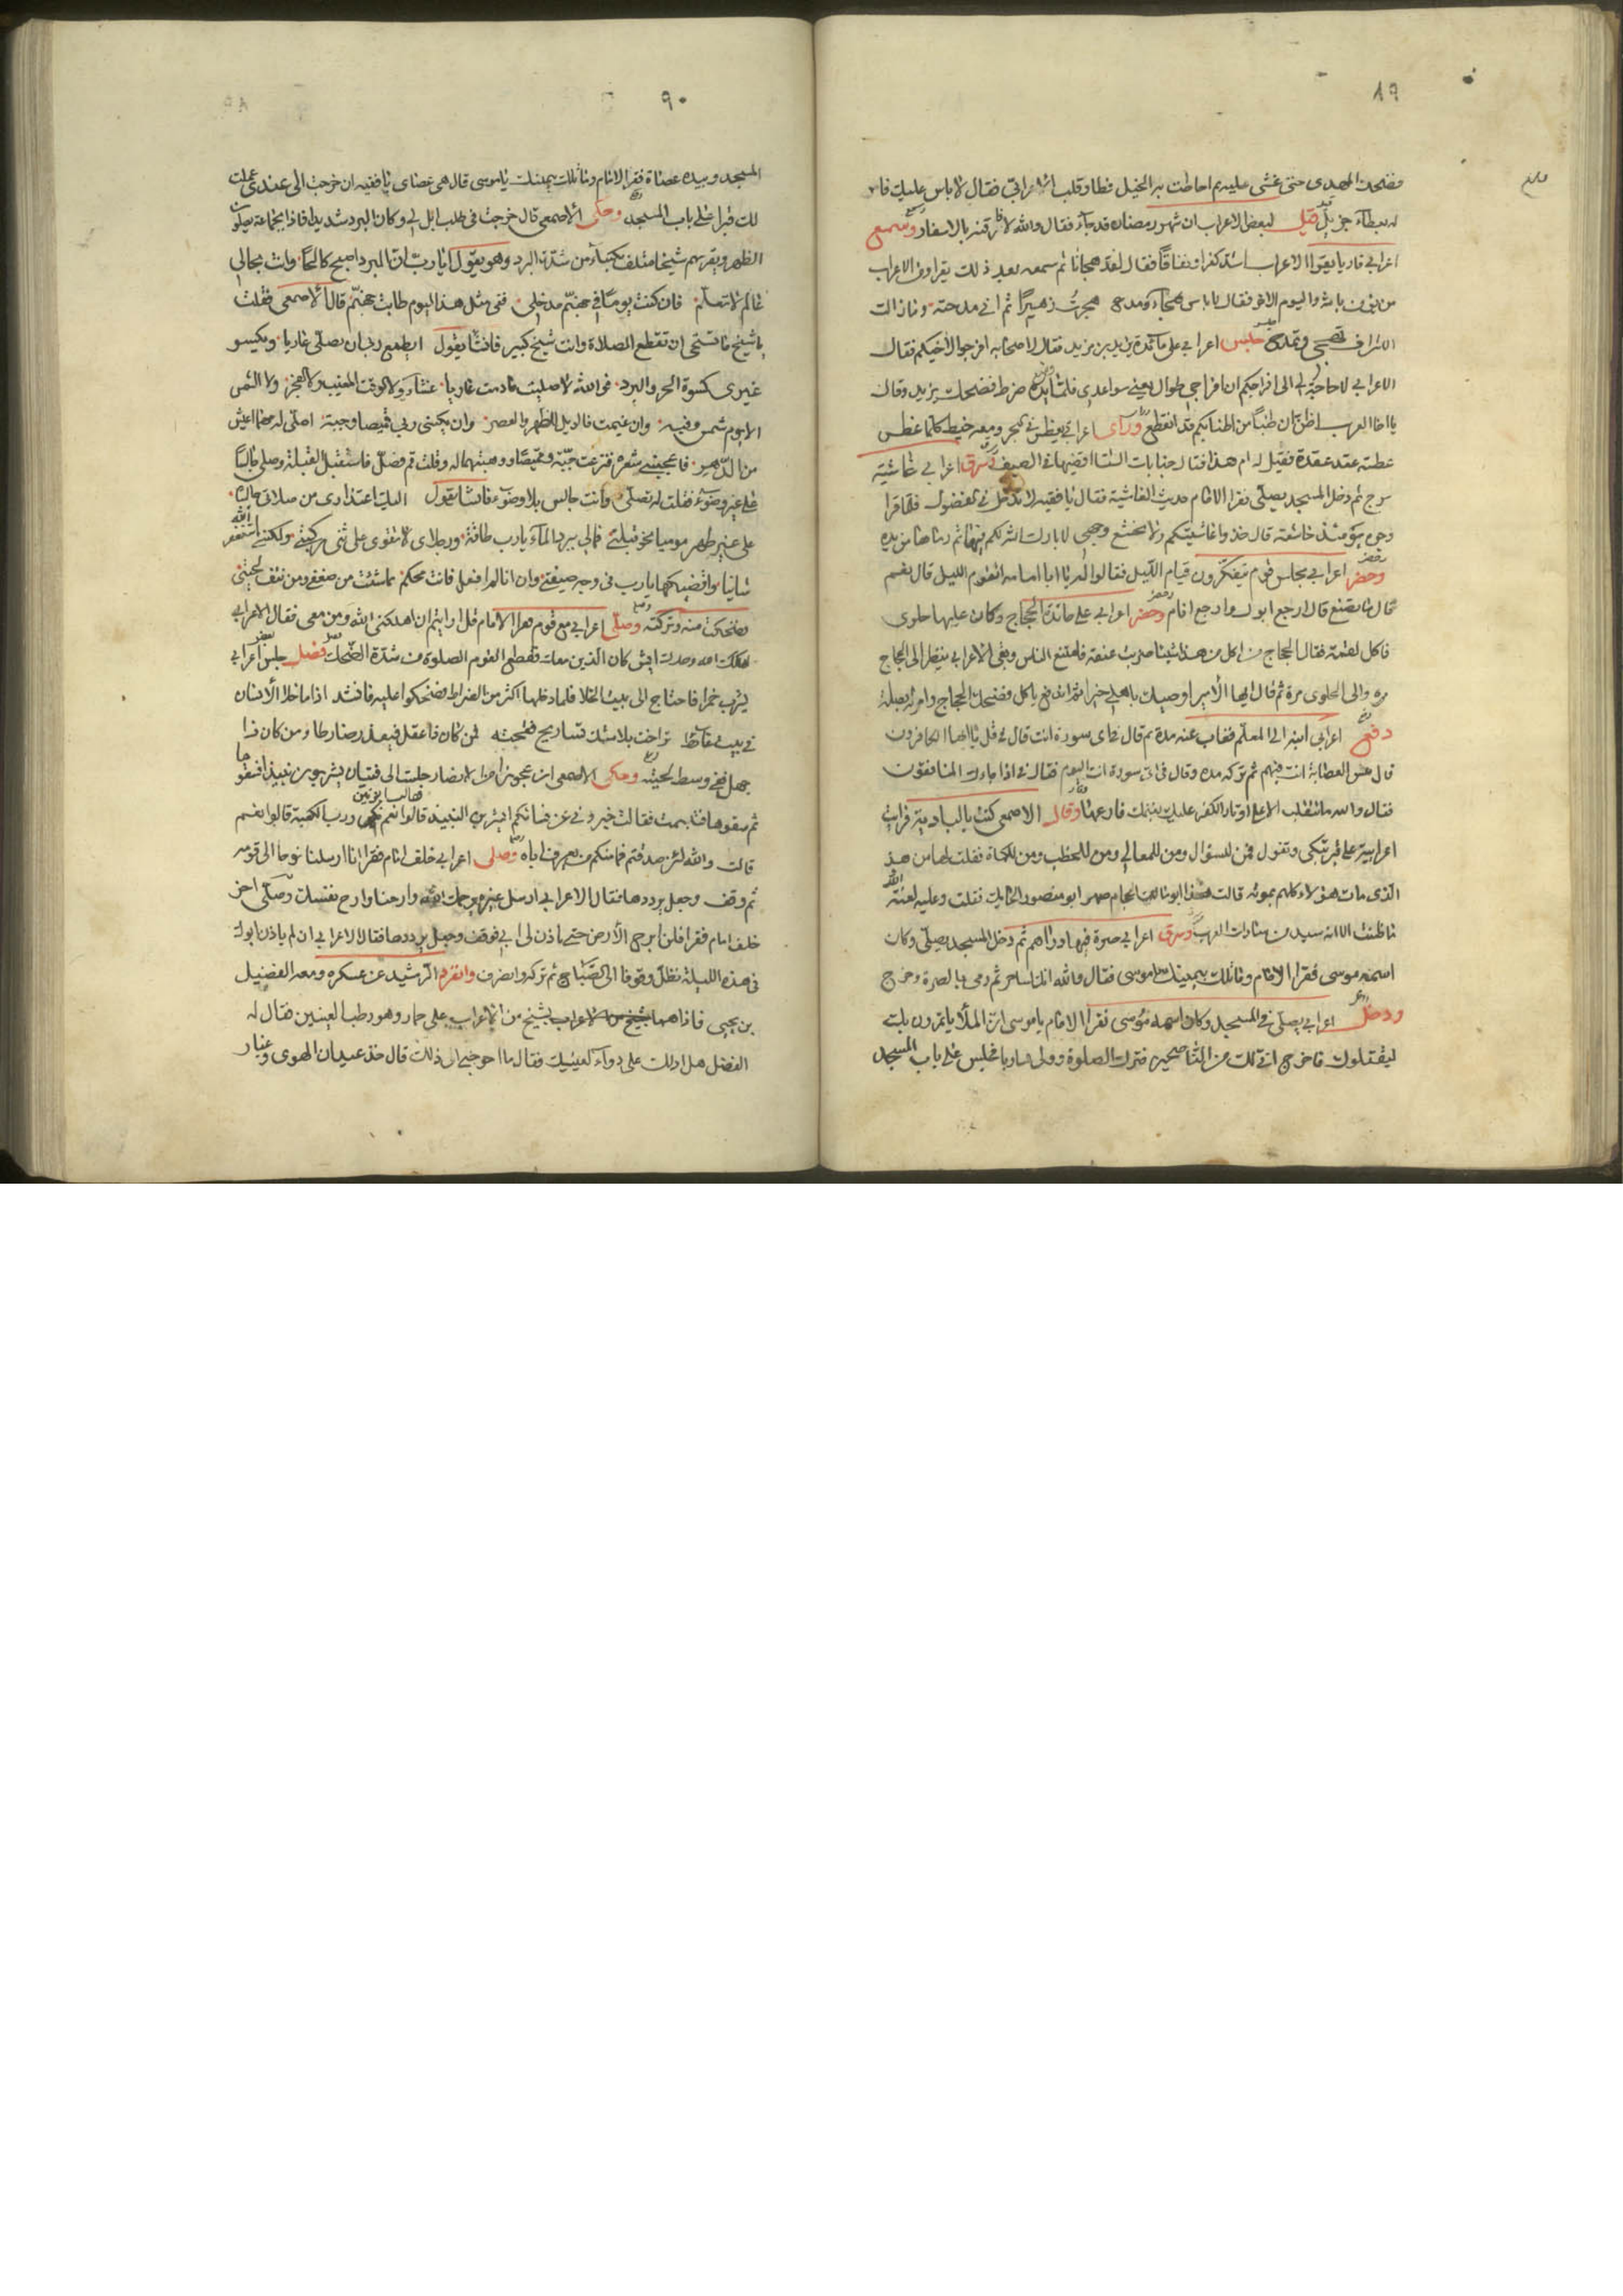 ٨٩
فضحك المهدى حتى غشى عليه ثم احاطت به الخيل فطار قلب الاعرابى فقال لا باس عليك فامر
له بعطاء جزيل قيل لبعض الاعراب ان شهر رمضان قد جاء فقال والله لافرقنه بالاسفار وسمع
اعرابى قاريا يقرا الاعراب اشد كفرا ونفاقا فقال لقد هجانا ثم سمعه بعد ذلك يقرا ومن الاعراب
من يؤمن بالله واليوم الاخر فقال لا باس هجاء ومدح هجوت زهيرا ثم انى مدحته وما زالت
الاشراف تهجى وتمدح جلس اعرابى على مائدة يزيد بن مزيد فقال لاصحابه افرجوا لاخيكم فقال
الاعرابى لا حاجة لى الى افراجكم ان افراجى طوال يعنى سواعدى فلما مد يده ضرط فضحك يزيد وقال
يا اخا العرب اظن ان طنبا من اطنابكم قد انقطع وراى اعرابى يغطس فى البحر ومعه خيط كلما غطس
غطسة عقد عقدة فقيل له ما هذا قال جنابات الشتا اقضيها فى الصيف سرق اعرابى غاشية
سرج ثم دخل المسجد يصلى فقرا الامام حديث الغاشية فقال يا فقيه لا تدخل فى الفضول فلما قرا
وجوه يومئذ خاشعة قال خذوا غاشيتكم ولا يخشع وجهى لا بارك الله لكم فيها ثم رماها من يده
وحضر اعرابى مجلس قوم يتذكرون قيام الليل فقالوا له يا ابا امامه اتقوم الليل قال نعم
قال ما تصنع قال ارجع ابول وارجع انام وحضر اعرابى على مائدة الحجاج وكان عليها حلوى
فاكل لقمة فقال الحجاج من اكل من هذا شيئا ضربت عنقه فامتنع الناس وبقى الاعرابى ينظر الى الحجاج
مره والى الحلوى مرة ثم قال ايها الامير اوصيك باهلى خيرا ثم اندفع ياكل فضحك الحجاج وامر له بصلة
دفع اعرابى ابنه الى المعلم فغاب عنه مدة ثم قال فى اى سورة انت قال فى قل يا ايها الكافرون
قال بئس العصابة انت فيهم ثم تركه مده وقال فى اى سورة انت اليوم فقال فى اذا جاءك المنافقون
فقال والله ما تنقلب الا على اوتاد الكفر عليك بغنمك فارعها وقال الاصمعى كنت بالبادية فرايت
اعرابية على قبر تبكى وتقول فمن للسؤال ومن للمعالى ومن للخطب ومن للكماة فقلت لها من هذا
الذى مات هؤلاء كلهم بموته قالت هذا ابو مالك الحجام صهر ابو منصور الحايك فقلت وعليه لعنة الله
ما ظننت الا انه سيد من سادات العرب وسرق اعرابى صرة فيها دراهم ثم دخل المسجد يصلى وكان
اسمه موسى فقرا الامام وما تلك بيمينك يا موسى فقال والله انك لساحر ثم رمى بالصرة وخرج
ودخل اعرابى يصلى فى المسجد وكان اسمه موسى فقرا الامام يا موسى ان الملا ياتمرون بك
ليقتلوك فاخرج انى لك من الناصحين فترك الصلوة وولى هاربا فجلس على باب المسجد
٩٠
المسجد وبيده عصاة فقرا الامام وما تلك بيمينك يا موسى قال هى عصاى يا فقيه ان خرجت الى عندى عملت
لك قبرا على باب المسجد وحكى الاصمعى قال خرجت فى طلب ابل لى وكان البرد شديدا فاذا بجماعة يصلون
الظهر وبقربهم شيخا متلف بكساء من شدة البرد وهو يقول ايا رب ان البرد اصبح كالحا وانت بحالى
عالم لا تعلم فان كنت يوما فى جهنم مدخلى ففى مثل هذا اليوم طابت جهنم قال الاصمعى فقلت
يا شيخ ما تستحى ان تقطع الصلاة وانت شيخ كبير فانشا يقول ايطمع ربى ان يصلى عاريا ويكسو
غيرى كسوة الحر والبرد فوالله لا صليت ما دمت عاريا عشاء ولا الوقت المغيب ولا الفجر ولا الشمس
الا يوم شمس دفيه وان غيمت فالويل للظهر والعصر وان يكسنى ربى قميصا وجبة اصلى له مهما اعيش
من الدهر فاعجبنى شعره فنزعت جبة وقميصا ووهبتهما له وقلت قم فصل فاستقبل القبلة وصلى جالسا
على غير وضوء فقلت له تصلى وانت جالس بلا وضوء فانشا يقول اليك اعتذارى من صلاتى جالسا
على غير طهر موميا نحو قبلتى فمالى ببرد الماء يا رب طاقة ورجلاى لا تقوى على ثنى ركبتى ولكننى استغفر الله
شاتيا واقضيكها يا رب فى وجه صيفتى وان انا لم افعل فانت محكم بما شئت من صفعى ومن نتف لحيتى
فضحكت منه وتركته وصلى اعرابى مع قوم فقرا الامام قل ارايتم ان اهلكنى الله ومن معى فقال الاعرابى
اهلكك الله وحدك ايش كان الذين معك فقطع القوم الصلوة من شدة الضحك فصل جلس اعرابى
يشرب خمرا فاحتاج الى بيت الخلا فلما دخلها اكثر من الضراط فضحكوا عليه فانشد اذا ما خلا الانسان
فى بيت غائط تراخت بلا شك تساريح فقحته فمن كان ذا عقل فيعذر ضارطا ومن كان ذا
جهل ففى وسط لحيته وحكى الاصمعى ان عجوزا من الاعراب جلست الى فتيان يشربون نبيذا فسقوها
ثم سقوها فتبسمت فقالت خبرونى عن نسائكم ايشربن النبيذ قالوا نعم قالت زنين ورب الكعبة قالوا نعم
قالت والله لئن صدقتم فما منكم من يعرف اباه وصلى اعرابى خلف امام فقرا انا ارسلنا نوحا الى قومه
ثم وقف وجعل يرددها فقال الاعرابى ارسل غيره يرحمك الله وارحنا وارح نفسك وصلى اخر
خلف امام فقرا فلن ابرح الارض حتى ياذن لى ابى فوقف وجعل يرددها فقال الاعرابى ان لم ياذن ابوك
فى هذه الليلة نظل وقوفا الى الصباح ثم تركه وانصرف وانفرد الرشيد عن عسكره ومعه الفضيل
بن يحيى فاذا هما بشيخ من الاعراب على حمار وهو رطب العينين فقال له
الفضل هل ادلك على دواء لعينيك فقال ما احوجنى الى ذلك قال خذ عيدان الهوى وغبار